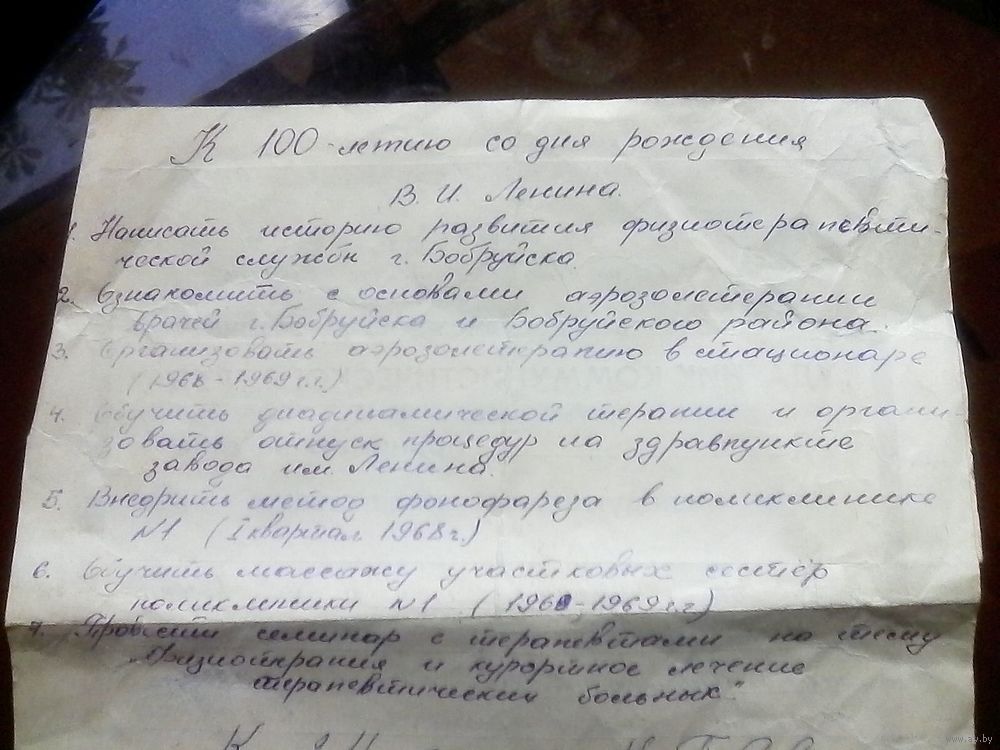 К 100-летию со дня рождения
В. И. Ленина.
1. Написать историю развития физиотерапевти-
ческой службы г. Бобруйска.
2. Ознакомить с основами аэрозольтерапии
врачей г. Бобруйска и Бобруйского района.
3. Организовать аэрозольтерапию в стационаре
(1968-1969 г.г.)
4. Обучить диадинамической терапии и органи-
зовать отпуск процедур на здравпункте
завода им. Ленина.
5. Внедрить метод фонофареза в поликлинике
N1 (I квартал 1968г.)
6. Обучить массажу участковых сестёр
поликлиники N1 (1968-1969 г.г.)
7. Провести семинар с терапевтами на тему
„Физиотерапия и курортное лечение
терапевтических больных."
К
www.ay.by